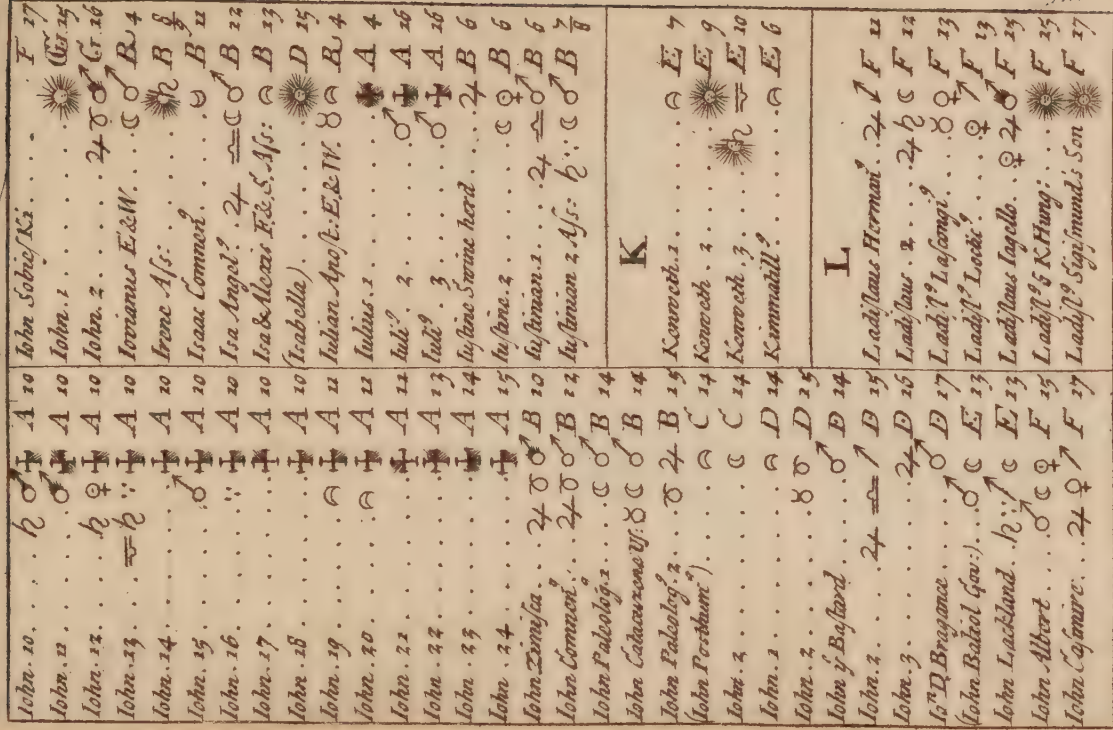 Iohn. 10 . . . ♄ ♂ ☩ A 10
Iohn. 11 . . . ♂ ☩ A 10
Iohn. 12 . . . ♄ ♀ ☩ A 10
Iohn. 13 . . . ♒ ♄ ∵ ☩ A 10
Iohn. 14 . . . ☩ A 10
Iohn. 15 . . . ♂ ☩ A 10
Iohn. 16 . . . ∵ ☩ A 10
Iohn. 17 . . . ☩ A 10
Iohn. 18 . . . ☩ A 10
Iohn. 19 . . . ☽ ☩ A 11
Iohn. 20 . . . ☽ ☩ A 11
Iohn. 21 . . . ☩ A 11
Iohn. 22 . . . ☩ A 13
Iohn. 23 . . . ☩ A 14
Iohn. 24 . . . ☩ A 15
Iohn Zimisca . . ♃ ♉ ♂ B 10
Iohn Commen⁹ . . ♃ ♉ ♂ B 12
Iohn Paleolog⁹. 1 . . ☾ ♂ B 14
Iohn ☾ ♂ B 14
Iohn Paleolog⁹. 2 . . ♉ ♃ B 15
(Iohn Posthum⁹) . . ☽ C 14
Iohn. 2 . . . ☾ C 14
Iohn. 1 . . . ☽ D 14
Iohn. 2 . . . ♉ ♉ D 15
Iohn yͤ Bastard . . ♂ D 14
Iohn. 2 . . . ♃ ♎ ↗ D 15
Iohn. 3 . . . ♃ D 16
Ioⁿ D. Bragance . . ♂ D 17
(Iohn Baliol Gov:) . . ♂ ☾ E 13
Iohn Lackland . . ♄ ∵ ↗ ☾ E 13
Iohn Albert . . ♂ ☾ ♀ F 15
Iohn Casimire . . ♃ ♀ ↗ F 17
Iohn Sobieski . . . F 17
Iohn. 1 . . . ☉ Gr. 15
Iohn. 2 . . . ♃ ♉ ♂ Gr. 16
Iovianus E & W. . . ☾ ♂ B 4
Irene Ass: . . ☉ ♄ B 8/9
Isaac Commen⁹ . . ☾ B 11
Isa Angel⁹ . . ♃ ♎ ☾ ♂ B 12
Isa & Alexis F. & S. Ass: ☽ B 13
(Isabella) . . . ☉ D 15
Iulian Apost: E & W. ♉ ☽ B 4
Iulius. 1 . . . ☩ A 4
Iuli⁹ 2 . . . ♂ ☩ A 16
Iuli⁹ 3 . . . ♂ ☩ A 16
Iustine Swine herd . . ♃ B 6
Iustine. 2 . . . ☾ ♀ B 6
Iustinian. 1 . . ♃ ♎ ♂ B 6
Iustinian 2 Ass: ♄ ∵ ☾ ♂ B 7/8
K
Kenneth. 1 . . . ☽ E 7
Kenneth. 2 . . . ☉ E 9
Kenneth. 3 . . . ☉ ♄ ♎ E 10
Kinnatill⁹ . . . ☽ E 6
L
Ladislaus Herman⁹ . . ♃ ↗ F 11
Ladislaus. 2 . . . ♃ ♄ ☾ F 12
Ladisl⁹ Lascongi⁹ . . ♉ ♀ F 13
Ladisl⁹ Loctic⁹ . . ♀ ↗ F 13
Ladislaus Iagello . . ♀ ♃ ♂ F 15
Ladisl⁹ 5 K Hung: . . ☉ F 15
Ladisl⁹ Sigismund's Son ☉ F 17